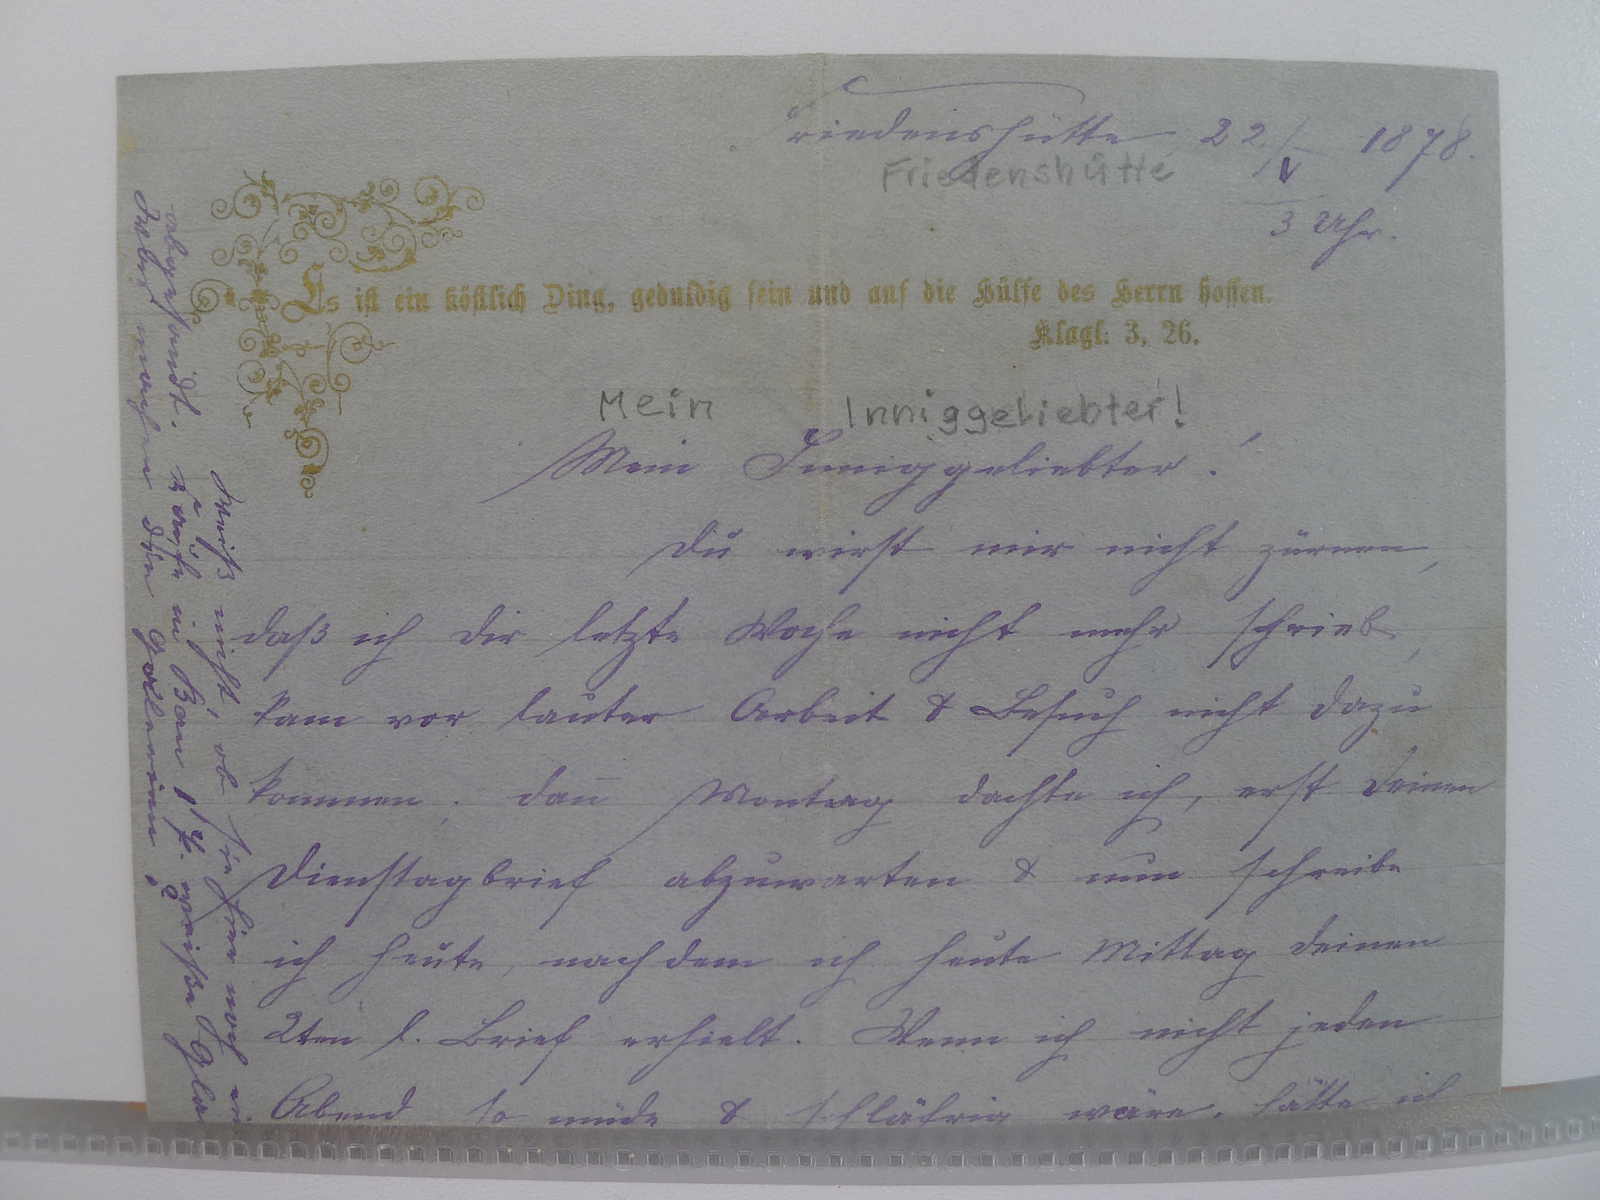 Friedenshütte 22./V 1878.
Friedenshütte
3 Uhr.
Es ist ein köstlich Ding, geduldig sein und auf die Hülfe des Herrn hoffen.
Klagl: 3, 26.
Mein Inniggeliebter!
Mein Inniggeliebter!
Du wirst mir nicht zürnen,
daß ich Dir letzte Woche nicht mehr schrieb,
kam vor lauter Arbeit & Besuch nicht dazu
kommen, dan̄ Montag dachte ich, erst Deinen
Dienstagbrief abzuwarten & nun schreibe
ich heute, nachdem ich heute Mittag Deinen
2ten l. Brief erhielt. Wenn ich nicht jeden
Abend so müde & schläfrig wäre, hätte ich
weiß nicht, ob sie hier noch
abgesandt.